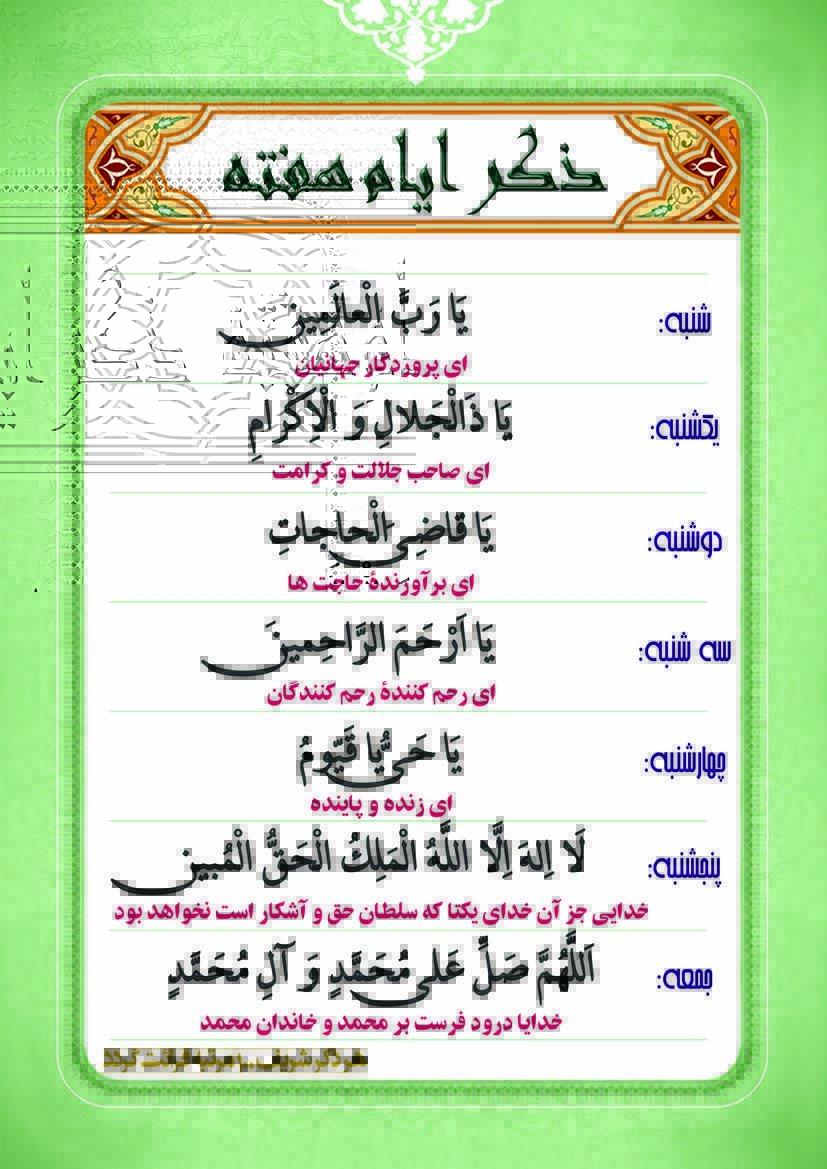 ذکر ایام هفته
شنبه: یَا رَبَّ الْعالَمِین
ای پروردگار جهانیان
یکشنبه: یَا ذَالْجَلالِ وَ الْاِکْرامِ
ای صاحب جلالت و کرامت
دوشنبه: یَا قاضِیَ الْحاجاتِ
ای برآورندهٔ حاجت ها
سه شنبه: یَا اَرْحَمَ الرَّاحِمینَ
ای رحم کنندهٔ رحم کنندگان
چهارشنبه: یَا حَیُّ یا قَیّومُ
ای زنده و پاینده
پنجشنبه: لَا اِلهَ اِلَّا اللَّهُ الْمَلِکُ الْحَقُّ الْمُبین
خدایی جز آن خدای یکتا که سلطان حق و آشکار است نخواهد بود
جمعه: اَللَّهُمَّ صَلِّ عَلی مُحَمَّدٍ وَ آلِ مُحَمَّدٍ
خدایا درود فرست بر محمد و خاندان محمد
هر ذکر شریف مرتبه قرائت گردد